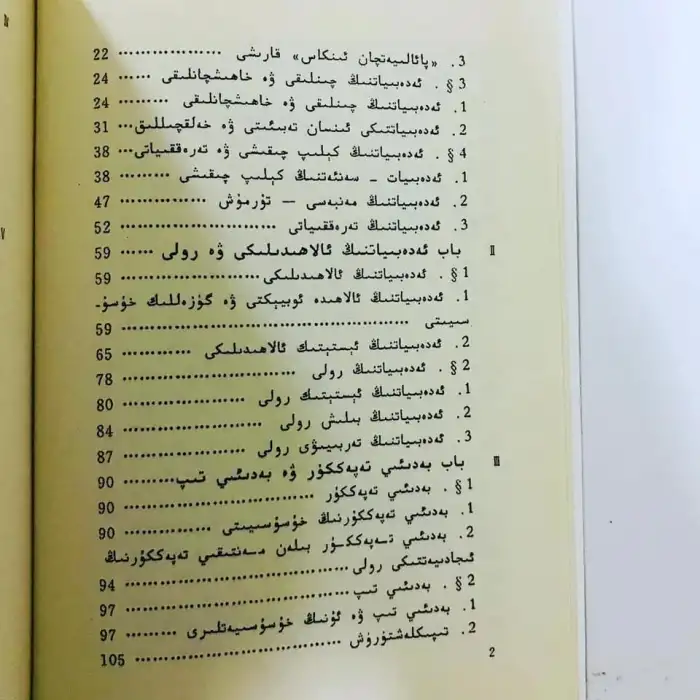 3. «پائالىيەتچان ئىنكاس» قارىشى ………… 22
3 §. ئەدەبىياتنىڭ چىنلىقى ۋە خاھىشچانلىقى …… 24
1. ئەدەبىياتنىڭ چىنلىقى ۋە خاھىشچانلىقى ……… 24
2. ئەدەبىياتتىكى ئىنسان تەبىئىتى ۋە خەلقچىللىق… 31
4 §. ئەدەبىياتنىڭ كېلىپ چىقىشى ۋە تەرەققىياتى… 38
1. ئەدەبىيات ــ سەنئەتنىڭ كېلىپ چىقىشى ……… 38
2. ئەدەبىياتنىڭ مەنبەسى — تۇرمۇش ………… 47
3. ئەدەبىياتنىڭ تەرەققىياتى ………………… 52
Ⅱ باب ئەدەبىياتنىڭ ئالاھىدىلىكى ۋە رولى …… 59
1 §. ئەدەبىياتنىڭ ئالاھىدىلىكى ……………… 59
1. ئەدەبىياتنىڭ ئالاھىدە ئوبيېكتى ۋە گۈزەللىك خۇسۇ-
سىيىتى ……………………………… 59
2. ئەدەبىياتنىڭ ئېستېتىك ئالاھىدىلىكى ………… 65
2 §. ئەدەبىياتنىڭ رولى …………………… 78
1. ئەدەبىياتنىڭ ئېستېتىك رولى ……………… 80
2. ئەدەبىياتنىڭ بىلىش رولى ………………… 84
3. ئەدەبىياتنىڭ تەربىيىۋى رولى ……………… 87
Ⅲ باب بەدىئىي تەپەككۈر ۋە بەدىئىي تىپ……… 90
1 §. بەدىئىي تەپەككۈر ……………………… 90
1. بەدىئىي تەپەككۈرنىڭ خۇسۇسىيىتى ………… 90
2. بەدىئىي تەپەككۈر بىلەن مەنتىقىي تەپەككۈرنىڭ
ئىجادىيەتتىكى رولى ……………………… 94
2 §. بەدىئىي تىپ …………………………… 97
1. بەدىئىي تىپ ۋە ئۇنىڭ خۇسۇسىيەتلىرى ……… 97
2. تىپىكلەشتۈرۈش ………………………… 105
2